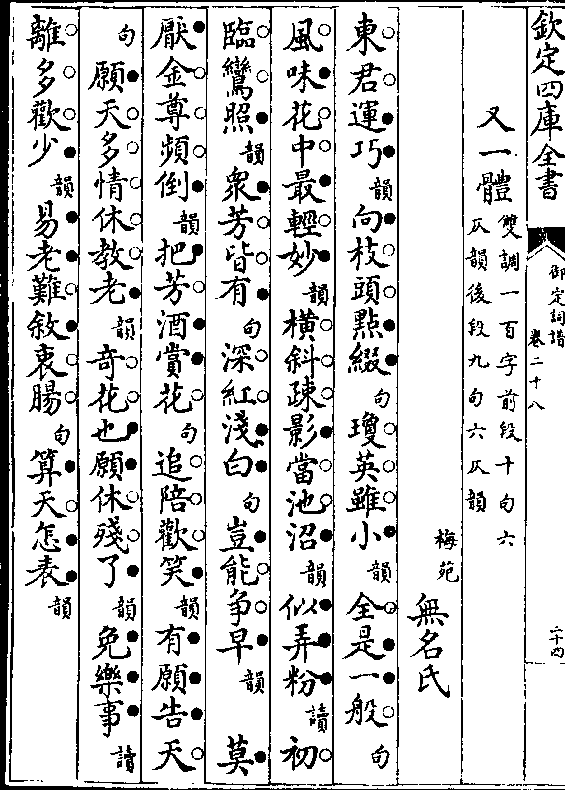 欽定四庫全書
御定詞譜
卷二十八
二十四
又一體
雙調一百字前段十句六
仄韻後段九句六仄韻
梅苑
無名氏
東君運巧韻向枝頭點綴句瓊英雖小韻全是一般句
風味花中最輕妙韻橫斜疎影當池沼韻似弄粉讀初
臨鸞照韻衆芳皆有句深紅淺白句豈能争早韻莫
厭金尊頻倒韻把芳酒賞花句追陪歡笑韻有願告天
句願天多情休教老韻奇花也願休殘了韻免樂事讀
離多歡少韻易老難敘衷腸句算天怎表韻